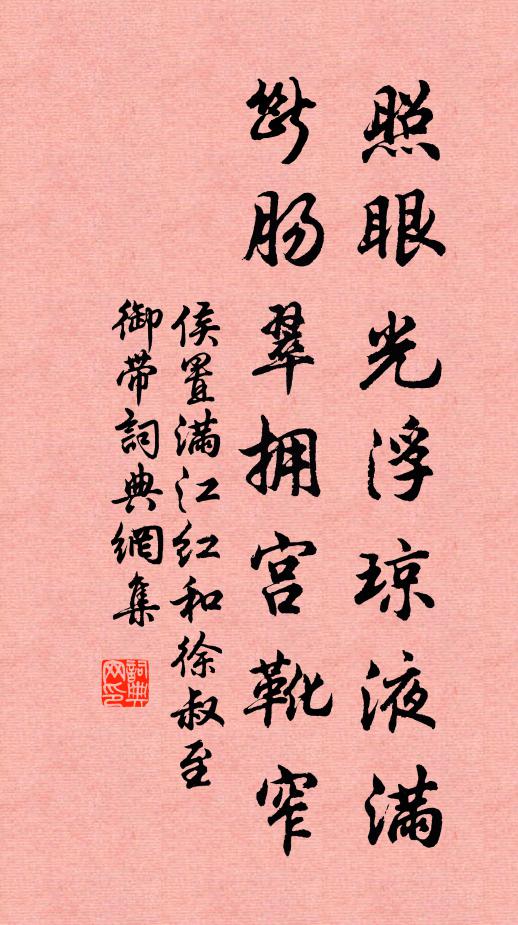 照眼光浮琼液满
断肠翠拥宫靴窄
侯置满江红和徐叔至
御带詞典網集
詞典网印